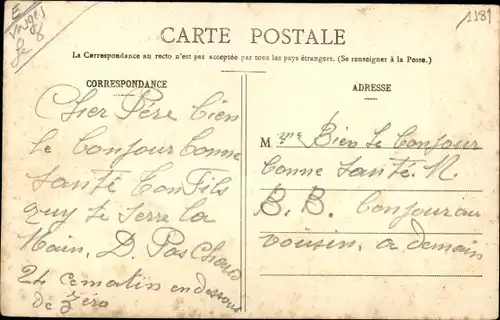 E
Vosges
1381
CARTE POSTALE
La Correspondance au recto n'est pas acceptée par tous les pays étrangers. (Se renseigner à la Poste.)
CORRESPONDANCE
Cher Pére bien
le bonjour bonne
santé ton Fils
quy te serre la
Main. D. Pas Chaud
24 ce matin en dessous
de Zéro
ADRESSE
M me Bien le bonjour
bonne santé. N.
B. B. bonjour au
voisin, a demain